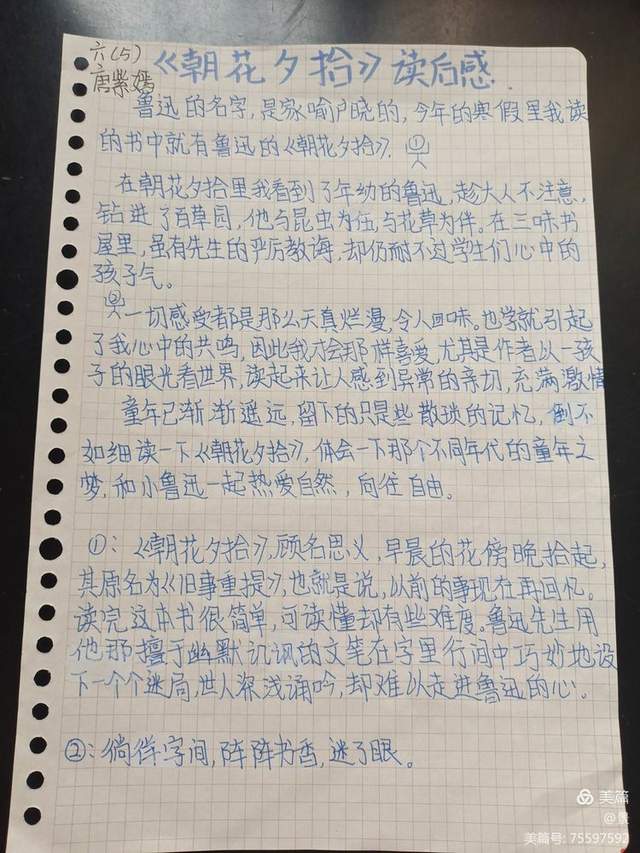 六(5)
唐紫嫣
《朝花夕拾》读后感
鲁迅的名字,是家喻户晓的,今年的寒假里我读
的书中就有鲁迅的《朝花夕拾》. ①
在朝花夕拾里我看到了年幼的鲁迅,趁大人不注意,
钻进了百草园,他与昆虫为伍,与花草为伴。在三味书
屋里,虽有先生的严厉教诲,却仍耐不过学生们心中的
孩子气。
②
一切感受都是那么天真烂漫,令人回味。也学就引起
了我心中的共鸣,因此我才会那样喜爱,尤其是作者以一孩
子的眼光看世界,读起来让人感到异常的亲切,充满激情
童年已渐渐遥远,留下的只是些散琐的记忆,倒不
如细读一下《朝花夕拾》,体会一下那个不同年代的童年之
梦,和小鲁迅一起热爱自然,向往自由。
①:《朝花夕拾》,顾名思义,早晨的花傍晚拾起,
其原名为《旧事重提》,也就是说,以前的事现在再回忆。
读完这本书很简单,可读懂却有些难度。鲁迅先生用
他那擅于幽默讥讽的文笔在字里行间中巧妙地设
下一个个迷局,世人深浅诵吟,却难以走进鲁迅的心。
②:徜徉字间,阵阵书香,迷了眼。
美篇
@景
美篇号: 75597592